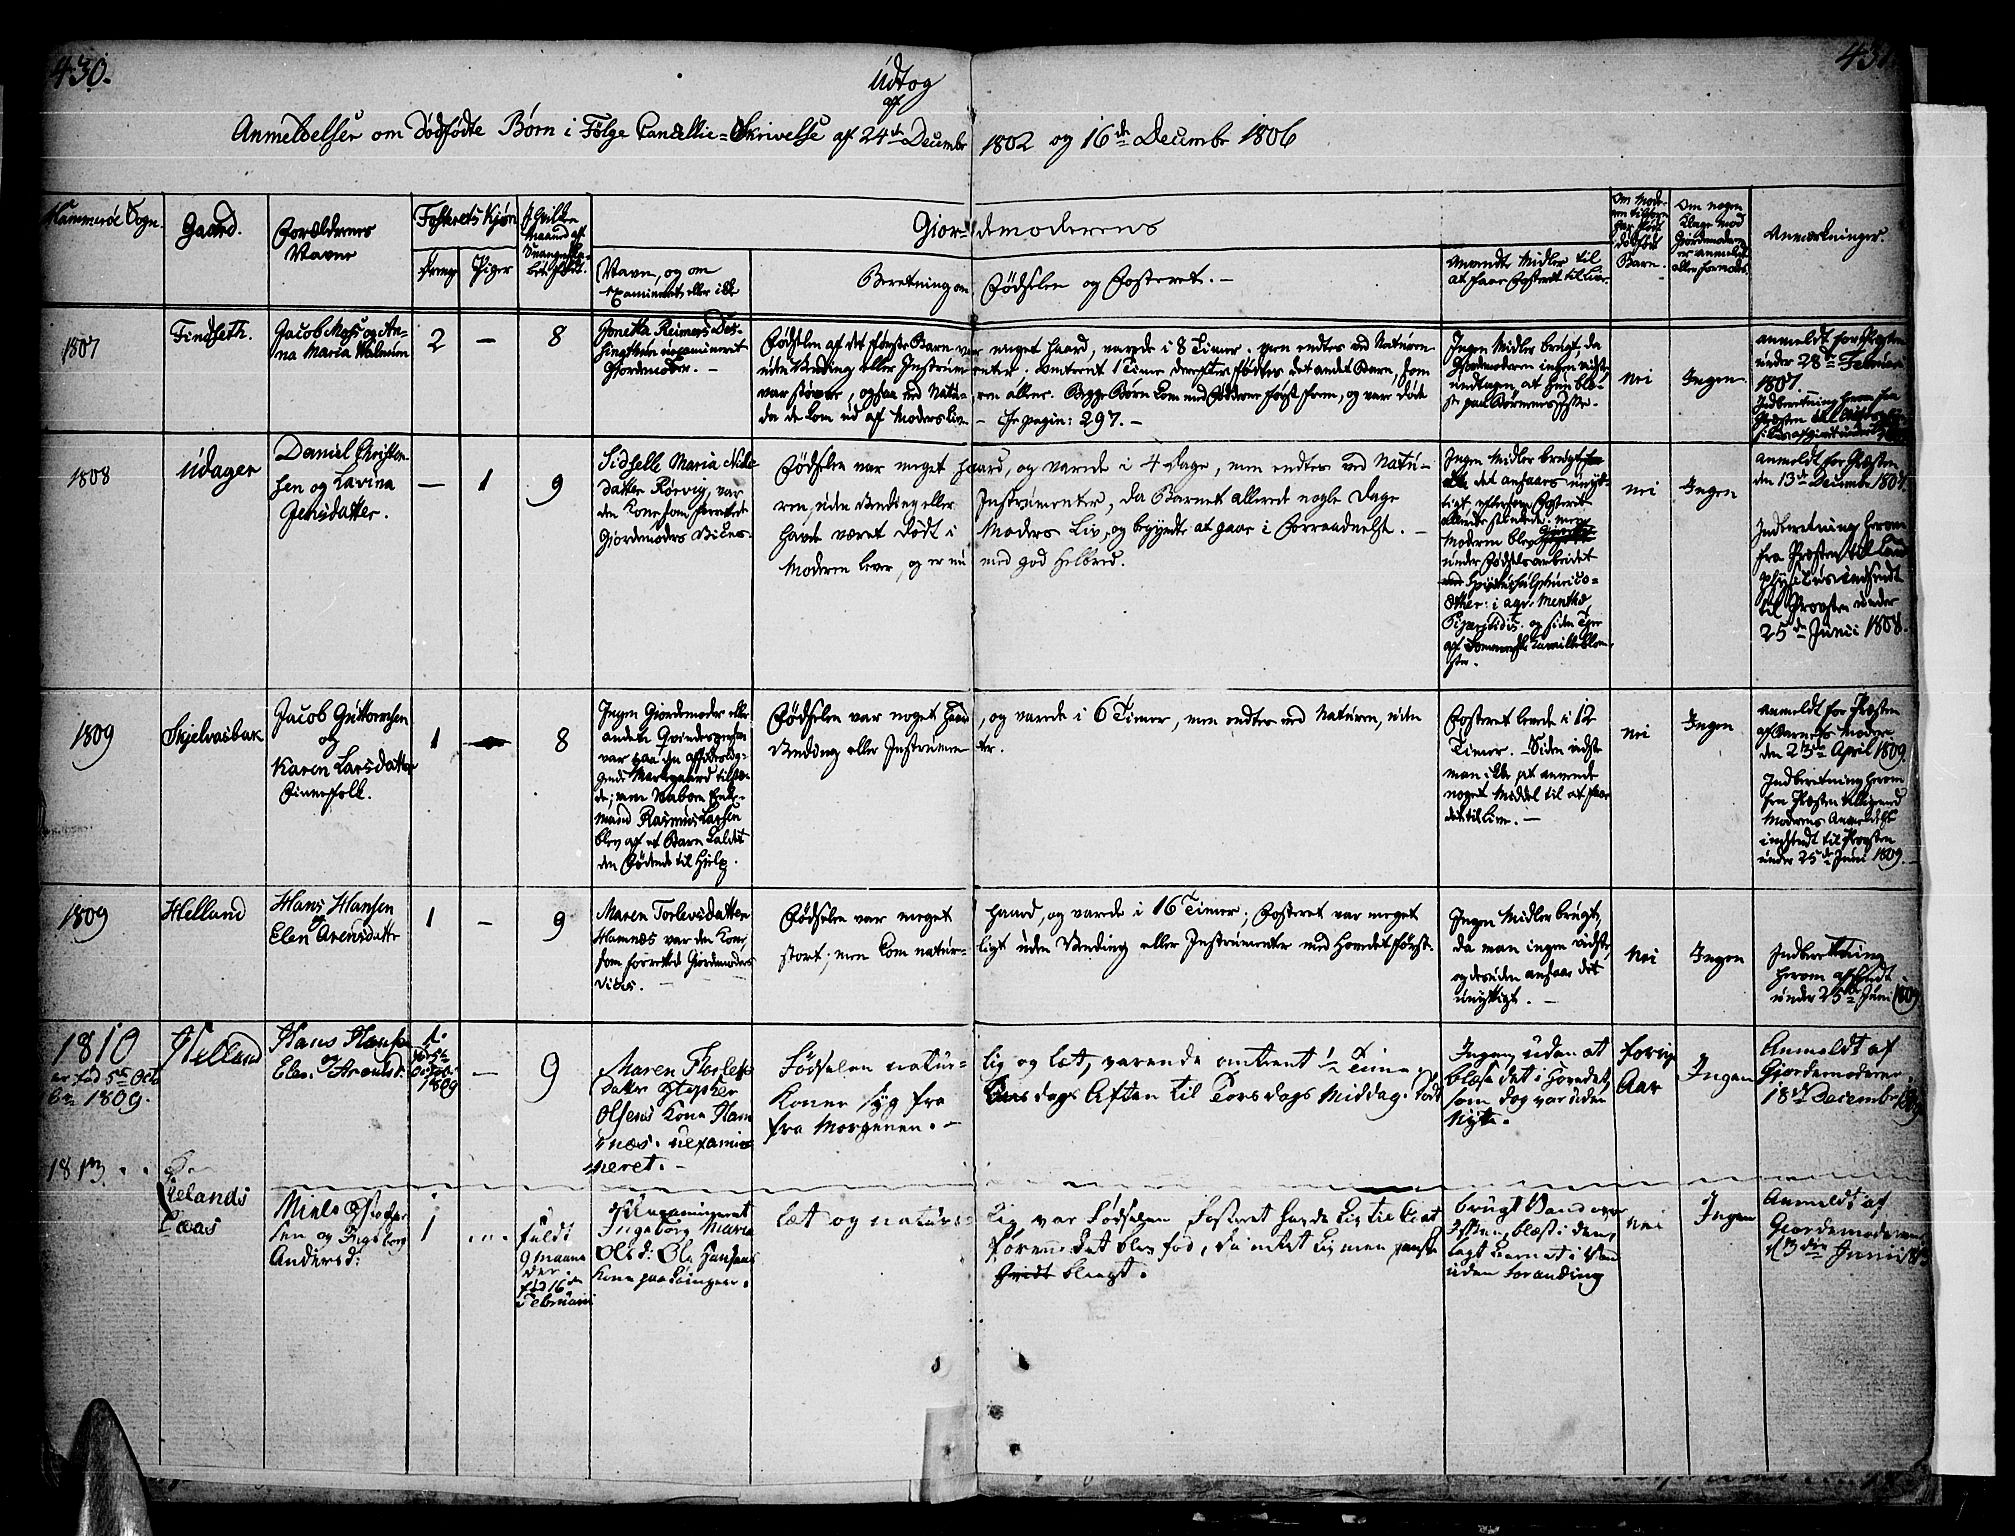 430.
431.
Udtog
af
Anmeldelser om dødfødte Børn i Følge Cancellie-Skrivelse af 24de Decembr 1802 og 16de Decembr 1806
Hammerøe Sogn.
Gaard.
Forældrenes
Navne
Fosterets Kjøn
Drenge
Piger
Giordemoderens
Navn, og om
examineret eller ikke
Beretning om Fødselen og Fosteret. —
Anvendte Midler til
at faae Fosteret til Live.
Om Mode-
ren tilforn
har født
dødfødt
Barn.
Om nogen
Klage mod
Giordemoderen
er anmeldt
eller formodes.
Anmærkninger.
1807
Findseth.
Jacob Moss og An-
na Maria
2
—
8
Gjonetta Reimers
uexamineret
Gjordemoder. —
Fødselen af det første Barn var meget haard, varede i 8 Timer. men endtes ved Naturen
uden Vending eller Instrumenter. Omtrent 1 Time derefter fødtes det andet Barn, som
var større, ogsaa ved Naturen allene. Begge Børn kom med Fødderne først frem, og vare døde
da de kom ud af Moders Liv — pagin: 297. —
Ingen Midler brugt, da
Gjordemoderen ingen vidste
undtagen, at hun blæ-
ste paa Børnenes Isse. —
nei
Ingen
anmeldt for Præsten
under 28de Februar
1807. —
Indberetning herom fra
Præsten
1808
Udager
Daniel Christen-
sen og Lavina
Jensdatter.
—
1
9
Sidselle Maria Niels-
datter Rørvig, var
den Kone som forrettede
Giordemoders Vices.
Fødselen var meget haard, og varede i 4 Dage, men endtes ved Natu-
ren, uden Vending eller Instrumenter, da Barnet allerede nogle Dage
havde været dødt i Moders Liv, og begyndt at gaae i Forraadnelse. —
Moderen lever, og er nu med god Helbred.
Ingen Midler brugt
det ansaaes unyt-
tigt, eftersom Fosteret
allerede
Moderen blev
under Fødselsarbeidet
Spiritus sulphurico-
æther: i aqv. Menthæ
Piperitidis. og siden Thee
af Camilleblom-
ster.
nei
Ingen
anmeldt for Præsten
den 13de Decembr 1807.
Indberetning herom
fra Præsten til Land
physicus indsendt
til Provsten under
25de Junii 1808.
1809
Skjelvaibak
Jacob Guttormsen
og
Karen Larsdatter
Finnefolk.
1
—
8
Ingen Giordemoder eller
anden Qvindesperson
var paa den affidesliggende
Markgaard tilstæ-
de; men Naboen Enke-
mand Rasmus Larsen
blev af et Barn kaldet
den Fødende til Hielp.
Fødselen var noget haard, og varede i 6 Timer, men endtes ved Naturen, uden
Vending eller Instrumenter.
Fosteret levede i 12
Timer. — Siden vidste
man ikke at anvende
noget Middel til at faae
det til Live. —
nei
Ingen
anmeldt for Præsten
af Barnets Moder
den 23de April 1809.
Indberetning herom
fra Præsten
Moderens Anmeldelse
indsendt til Provsten
under 25de Junii 1809.
1809
Helland
Hans Hansen
og
Elen Arensdatter
1
—
9
Maren Torlevsdatter
Hamnæs var den Kone,
som forrettede Giordemoders
Vices. —
Fødselen var meget haard, og varede i 16 Timer; Fosteret var meget
stort; men kom naturligt uden Vending eller Instrumenter med Hovedet først.
Ingen Midler brugt,
da man ingen vidste,
og desuden ansaae det
unyttigt. —
Nei
Ingen
Indberetning
herom afsendt
under 25de Junii 1809
1810
er fød 5te Octo
ber 1809.
Helland
Hans Hansen
og
Elen Arensd.
1.
fød 5te
Octobr
1809
—
9
Maren Thorlefs
datter Stepher
Olsens Kone Ham
næs. uexami-
neret. —
Fødselen naturlig og let, varende omtrent 1/2 Time
Konen syg fra Onsdags Aften til Torsdags Middag. Født
fra Morgenen. —
Ingen, uden at
blæse det i Hovedet,
som dog var uden
Nytte.
forrige
Aar
Ingen
Anmeldt af
Giordemoderen
18de Decembr 1809
1813. . .
Helands
Ness
Niels
sen og Ingeborg
Andersd:
1
...
fuldt
9 maane
der.
fød 16de
Februarii
Uexamineret
Ingeborg Maria
Olsd: Ole Hansens
Kone paa
Let og naturlig var Fødselen, Fosteret havde Liv til lit at
føren det blev fød, da intet Liv men ganske
blegt.
brugt Vand over
Issen, blæst i den,
lagt Barnet i Vand
uden Forandring
nei
Ingen
Anmeldt af
Giordemoderen
Junii 1813